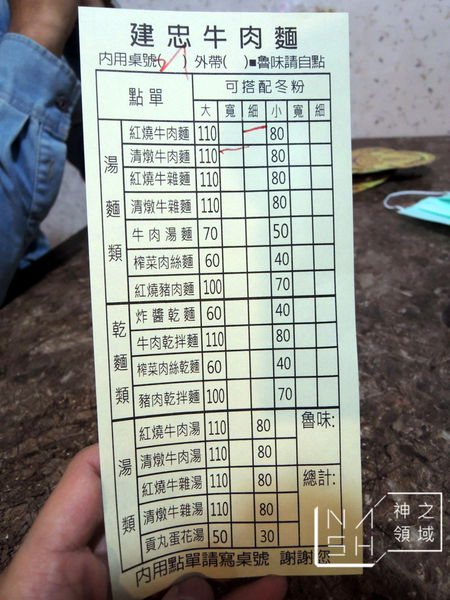 建忠牛肉麵
內用桌號( ) 外帶( )■魯味請自點
點單 可搭配冬粉
大 寬 細 小 寬 細
湯麵類
紅燒牛肉麵 110 80
清燉牛肉麵 110 80
紅燒牛雜麵 110 80
清燉牛雜麵 110 80
牛肉湯麵 70 50
榨菜肉絲麵 60 40
紅燒豬肉麵 100 70
乾麵類
炸醬乾麵 60 40
牛肉乾拌麵 110 80
榨菜肉絲乾麵 60 40
豬肉乾拌麵 100 70
湯類
紅燒牛肉湯 110 80
清燉牛肉湯 110 80
紅燒牛雜湯 110 80
清燉牛雜湯 110 80
貢丸蛋花湯 50 30
魯味:
總計:
內用點單請寫桌號 謝謝您
神之領域